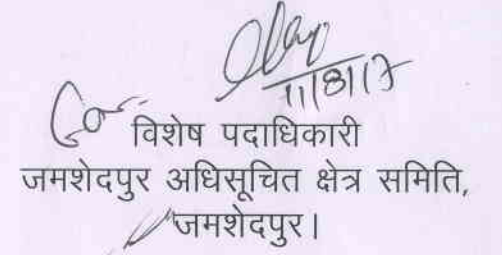 11/8/17
विशेष पदाधिकारी
जमशेदपुर अधिसूचित क्षेत्र समिति,
जमशेदपुर।